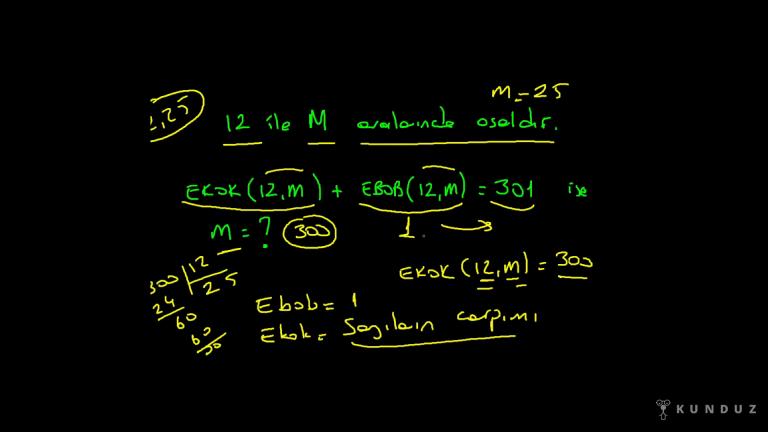 m=25
,25
12 ile M aralarında asaldır.
EKOK(12,m) + EBOB(12,m) = 301 ise
m = ? 300 1
EKOK(12,m) = 300
300 12
24 25
60
60
00
Ebob = 1
Ekok = Sayıların çarpımı
KUNDUZ